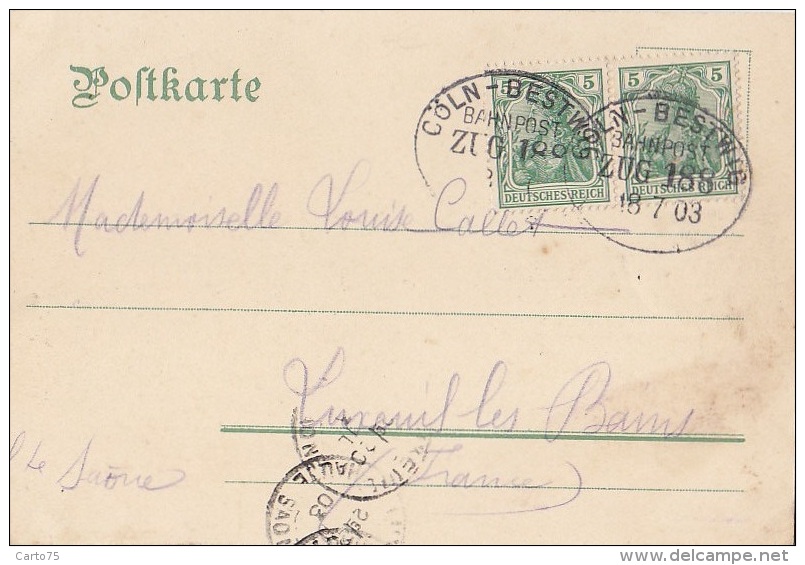 Postkarte
5
5
CÖLN-BESTWIG
BAHNPOST
ZUG 188
CÖLN-BESTWIG
BAHNPOST
ZUG 188
18 7 03
DEUTSCHES REICH
DEUTSCHES REICH
Mademoiselle Louise Callet
Luxeuil les Bains
Hte Saône
France
HAUTE SAONE
03
Carto75
delcampe.net